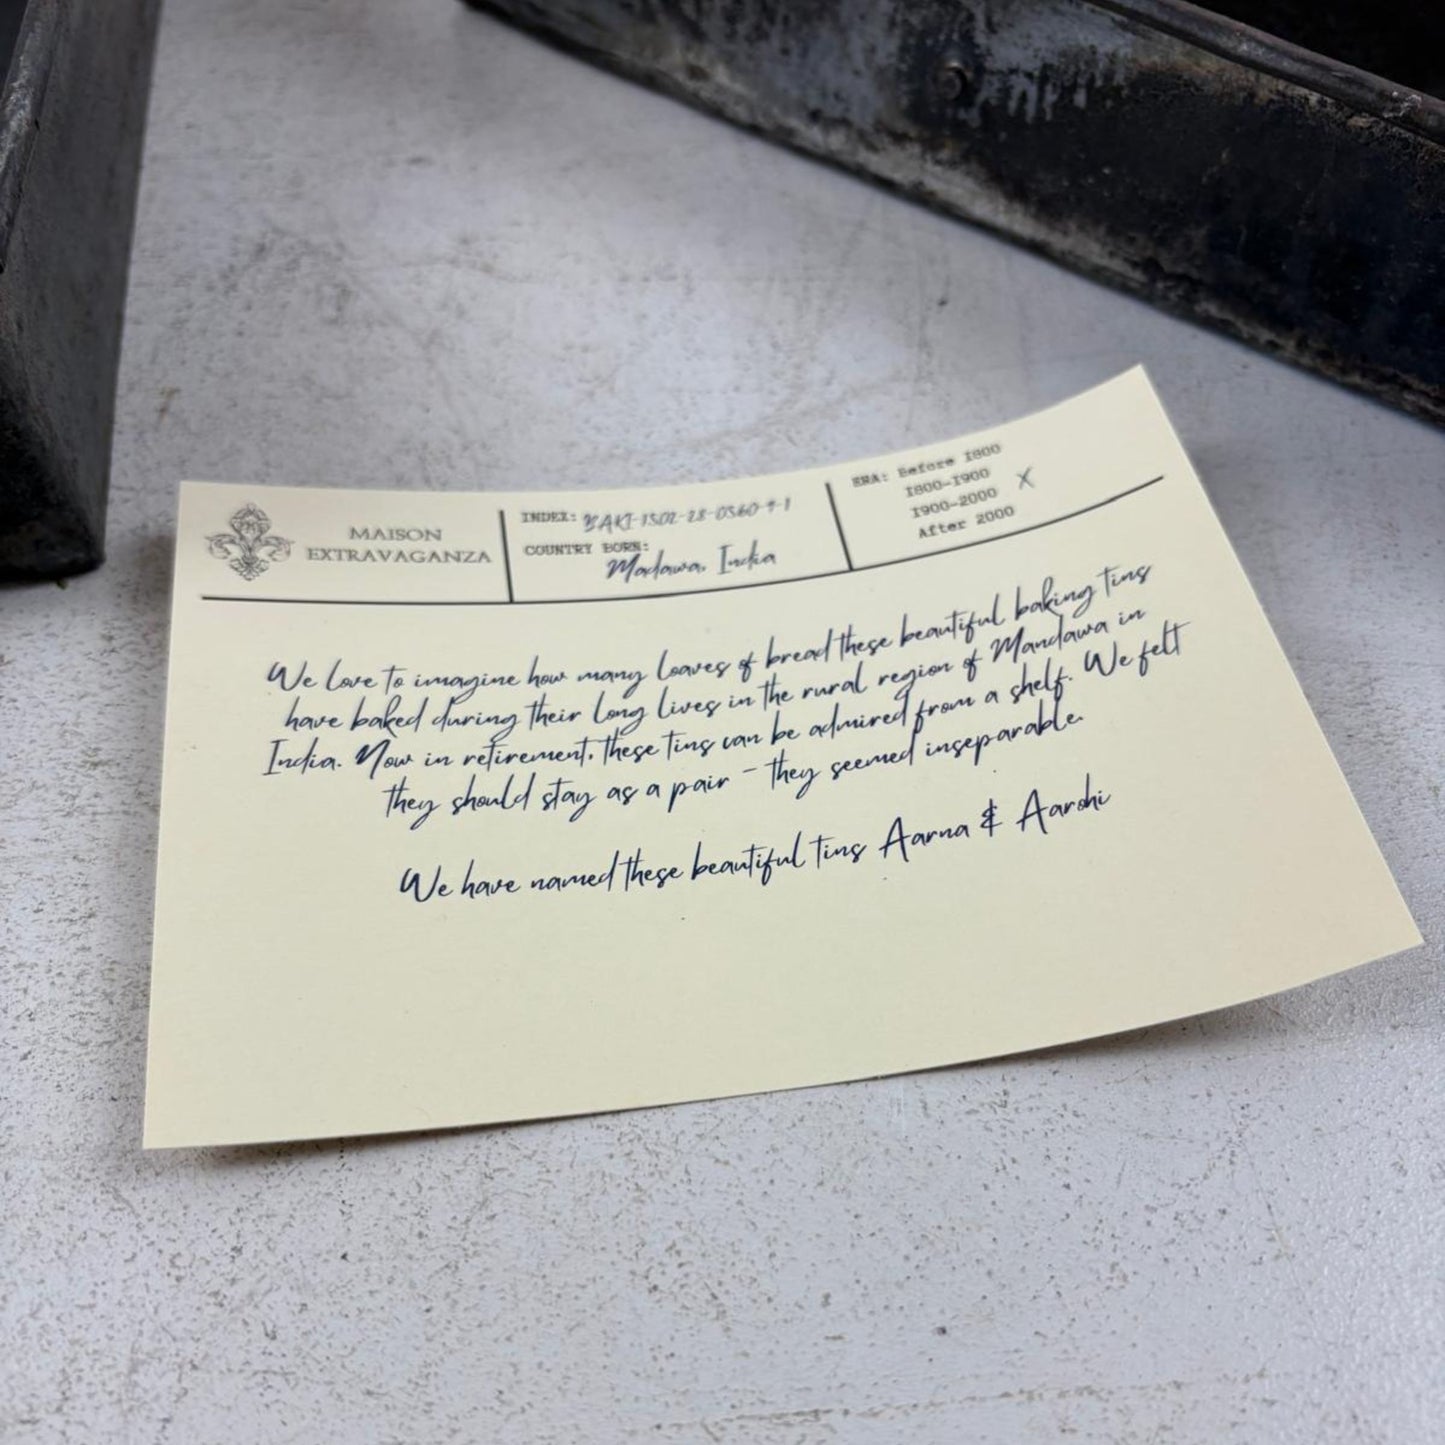 MAISON
EXTRAVAGANZA
INDEX: BAKT-1502-28-0560-9-1
COUNTRY BORN:
Madawa, India
ERA: Before 1800
1800-1900
1900-2000 X
After 2000
We love to imagine how many loaves of bread these beautiful baking tins
have baked during their long lives in the rural region of Mandawa in
India. Now in retirement, these tins can be admired from a shelf. We felt
they should stay as a pair - they seemed inseparable.
We have named these beautiful tins Aarna & Aarohi